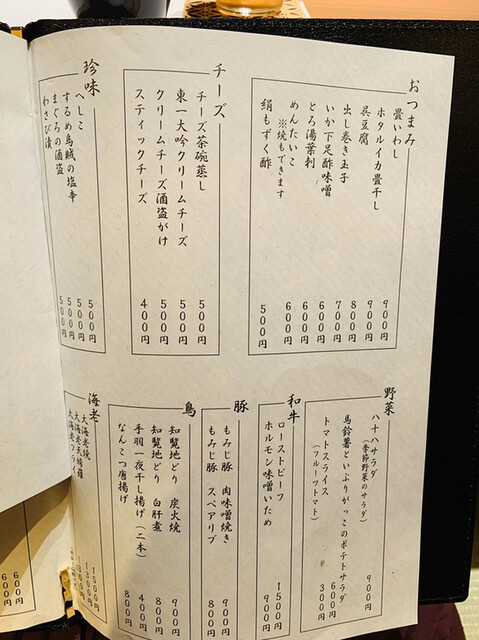 おつまみ
畳いわし 900円
ホタルイカ畳干し 900円
呉豆腐 800円
出し巻き玉子 700円
いか下足酢味噌 600円
とろ湯葉刺 600円
めんたいこ 600円
※焼もできます
絹もずく酢 500円
チーズ
チーズ茶碗蒸し 500円
東一大吟クリームチーズ 500円
クリームチーズ酒盗がけ 500円
スティックチーズ 400円
珍味
へしこ 500円
するめ烏賊の塩辛 500円
まぐろの酒盗 500円
わさび漬 500円
野菜
ハナハサラダ 900円
(季節野菜のサラダ)
馬鈴薯といぶりがっこのポテトサラダ 600円
トマトスライス 300円
(フルーツトマト)
和牛
ローストビーフ 1500円
ホルモン味噌いため 900円
豚
もみじ豚 肉味噌焼き 900円
もみじ豚 スペアリブ 800円
鳥
知覧地どり 炭火焼 900円
知覧地どり 白肝煮 800円
手羽一夜干し揚げ(二本) 400円
なんこつ唐揚げ 800円
海老
大海老焼 1500円
大海老天婦羅 1300円
大海老フライ 1300円
600円
600円